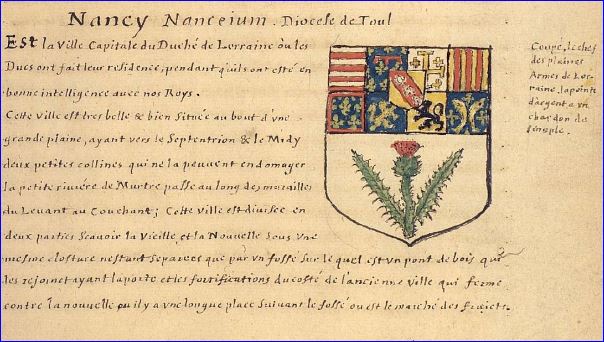 Nancy Nanceium. Diocese de Toul
Est la Ville Capitale du Duché de Lorraine ou les
Ducs ont fait leur residence, pendant qu'ils ont esté en
bonne intelligence avec nos Roys.
Cette ville est tres belle & bien située au bout d'une
grande plaine, ayant vers le Septentrion & le Midy
deux petites collines qui ne la peuvent endomager
la petite riviére de Murtre passe au long des murailles
du Levant au Couchant; Cette ville est divisée en
deux parties Scavoir la Vieille, et la Nouvelle sous une
mesme closture n'estant separées que par un fossé sur le quel est un pont de bois qui
les rejoinet ayant la porte et les fortifications du costé de l'ancienne ville qui ferme
contre la nouvelle ou il y a une longue place suivant le fossé ou est le marché des
Coupé, le chef
des plaines
Armes de Lor-
raine, la pointe
d'argent a un
chardon de
sinople.